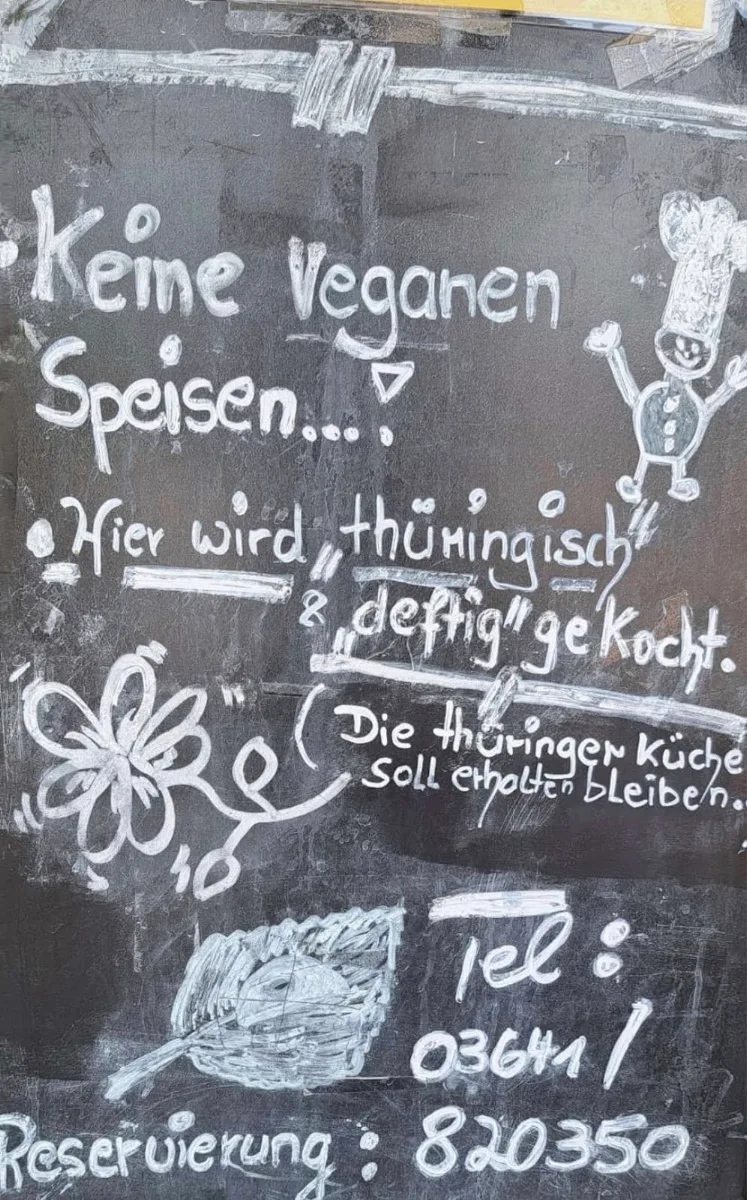 • Keine Veganen
Speisen....!
• Hier wird „thüringisch"
& „deftig" gekocht.
(Die thüringer Küche
soll erhalten bleiben.
Tel:
03641/
Reservierung: 820350